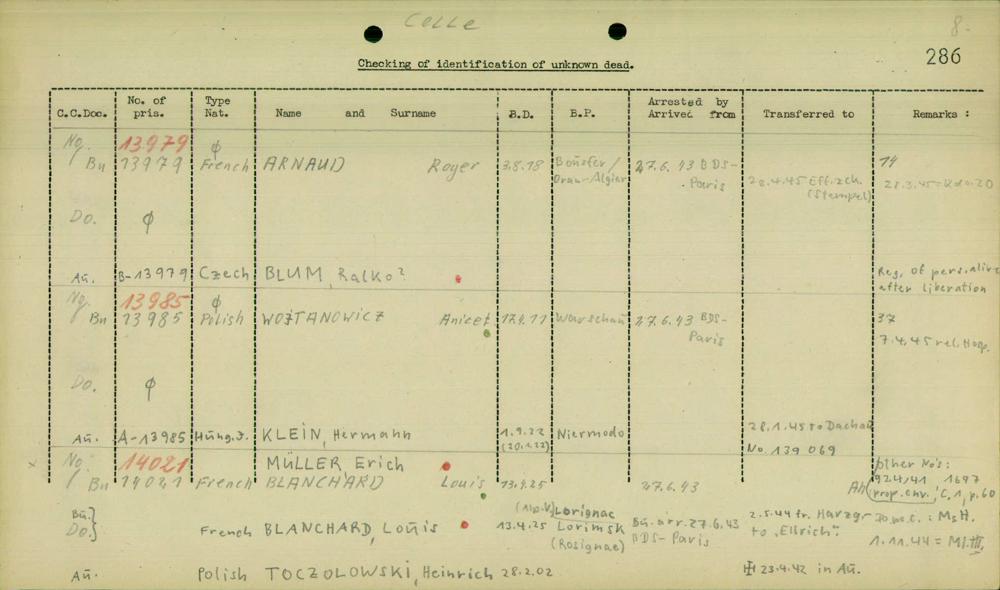 Celle
8.
286
Checking of identification of unknown dead.
C.C.Doc. No. of pris. Type Nat. Name and Surname B.D. B.P. Arrested by Arrived from Transferred to Remarks :
No. 13979 ϕ
Bu 13979 French ARNAUD Royer 3.8.18 Bousfer/ 27.6.43 BDS- 14
Oran-Algier Paris 28.4.45 Eff.zck. 28.3.45=Kdo.20
(Stempel)
Do. ϕ
Au. B-13979 Czech BLUM, Ralko? Reg. of pers. alive
after liberation
No. 13985 ϕ
Bu 13985 Polish WOJTANOWICZ Anicet 17.4.11 Warschau 27.6.43 BDS- 37
Paris 7.4.45 rel. Hosp.
Do. ϕ
Au. A-13985 Hung.J. KLEIN, Hermann 1.9.22 Niermodo 28.1.45 to Dachau
(20.1.22) No. 139 069
x No. 14021 MÜLLER, Erich other No's:
Bu 14021 French BLANCHARD Louis 13.4.25 27.6.43 924/41 1697
prop. env. C.1, p.60
Bu. Lorignac 2.5.44 fr. Harzgr
Do. French BLANCHARD, Louis 13.4.25 Lorimsk Bu. arr. 27.6.43 to "Ellrich". Do.w.c.: M5H.
(Rosignac) BDS-Paris 1.11.44 = M1.III.
Au. Polish TOCZOLOWSKI, Heinrich 28.2.02 23.4.42 in Au.